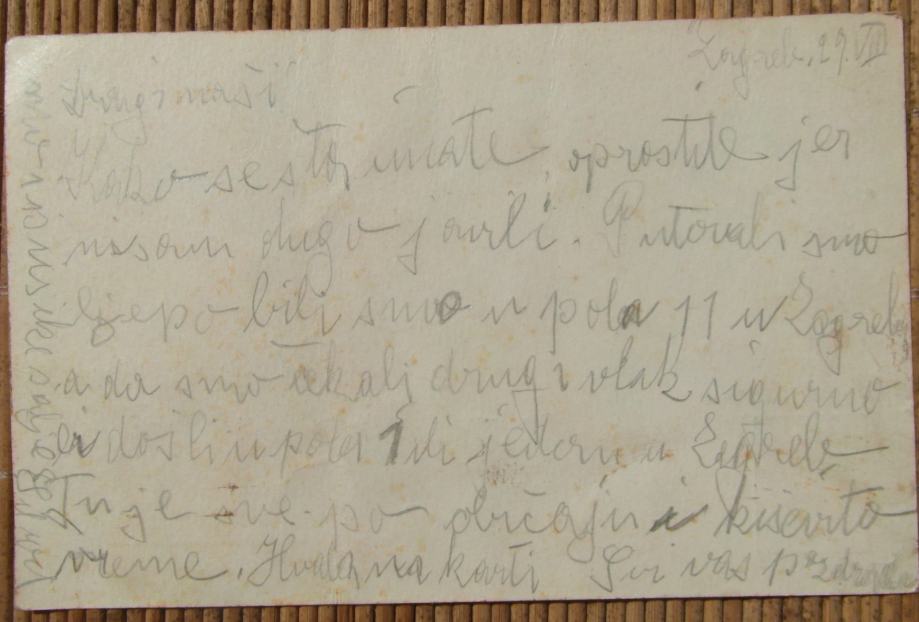 Zagreb, 29. VII
Dragi naši
Kako se šta imate, oprostite jer
nisam dugo javili. Putovali smo
ljepo bili smo u pola 11 u Zagrebu
a da smo čekali drugi vlak sigurno
bi došli u pola 1 ili jedan u Zagreb.
Tu je sve po običaju i kišovito
vreme. Hvala na karti Svi vas pozdravlja